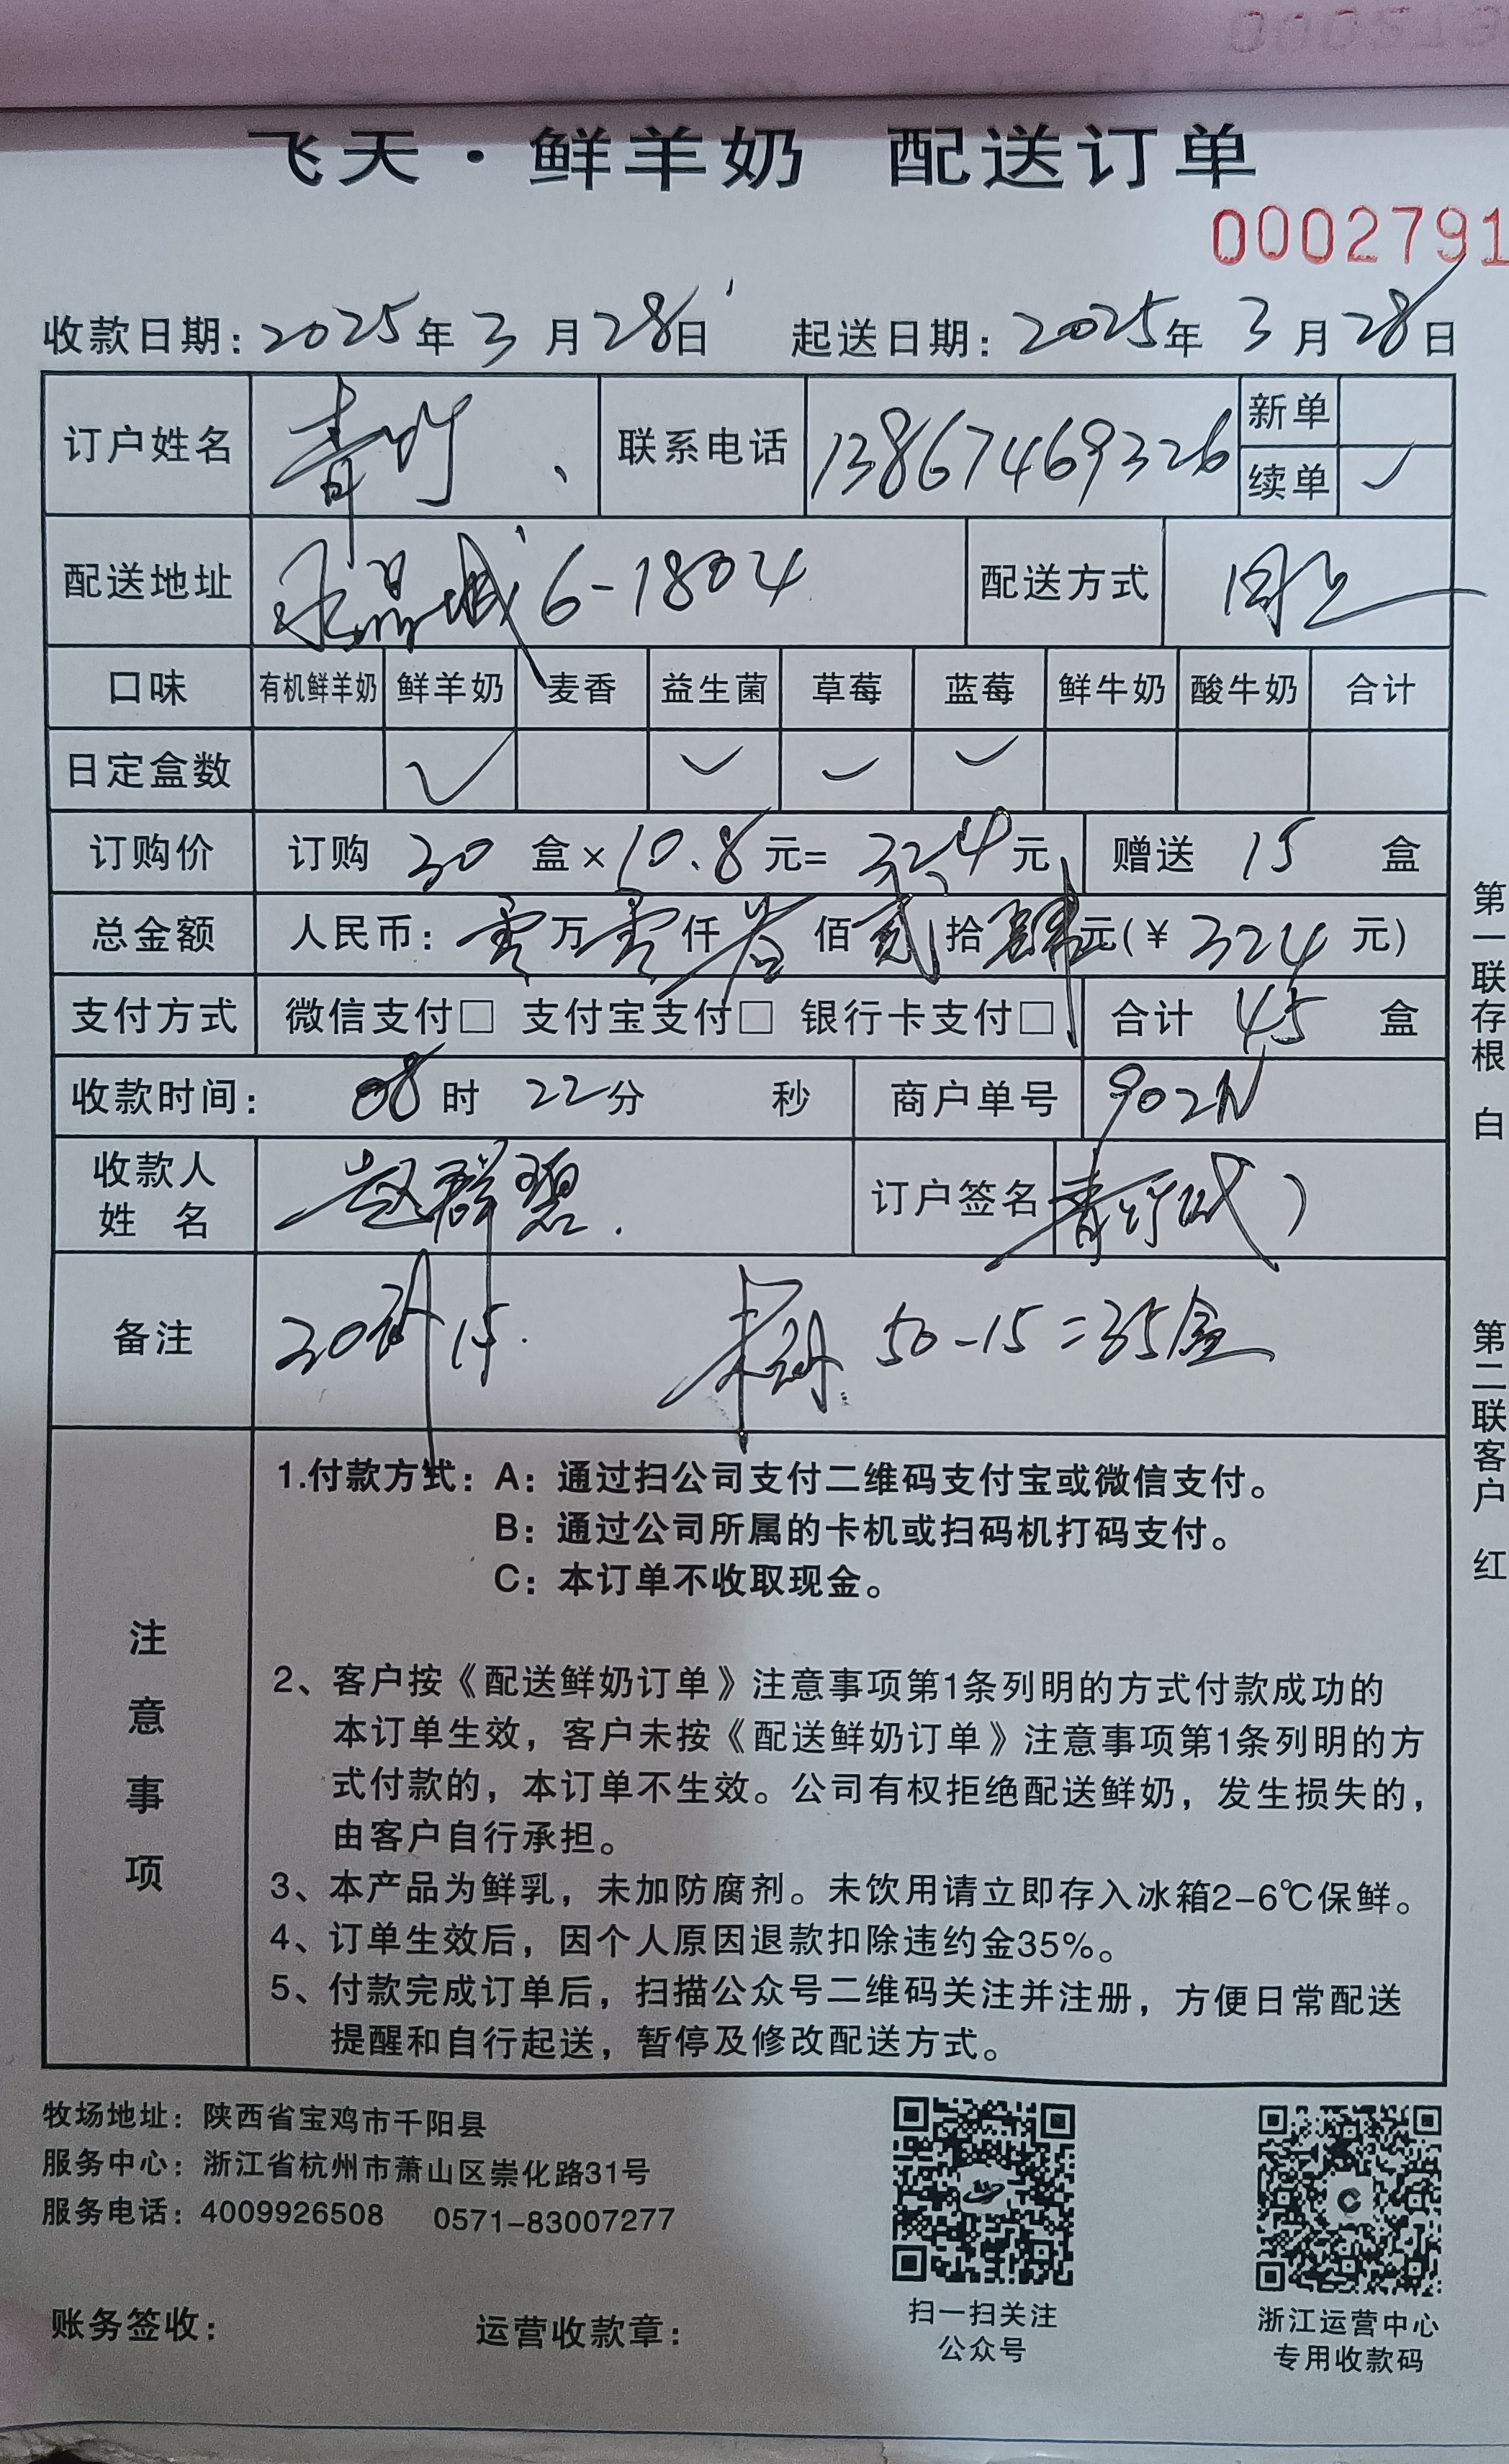 飞天·鲜羊奶 配送订单
0002791
收款日期：2025年3月28日 起送日期：2025年3月28日
订户姓名 青竹 联系电话 13867469326 新单
续单 ✓
配送地址 水晶城6-1804 配送方式
口味 有机鲜羊奶 鲜羊奶 麦香 益生菌 草莓 蓝莓 鲜牛奶 酸牛奶 合计
日定盒数 ✓ ✓ ✓ ✓
订购价 订购 30 盒×10.8元=324元 赠送 15 盒
总金额 人民币：零万零仟叁佰贰拾肆元(￥324元)
支付方式 微信支付□ 支付宝支付□ 银行卡支付□ 合计 45 盒
收款时间：08时22分 秒 商户单号 902N
收款人姓名 赵群碧. 订户签名 青竹(代)
备注 30 15. 50-15=35盒
注意事项
1.付款方式：A：通过扫公司支付二维码支付宝或微信支付。
B：通过公司所属的卡机或扫码机打码支付。
C：本订单不收取现金。
2、客户按《配送鲜奶订单》注意事项第1条列明的方式付款成功的
本订单生效，客户未按《配送鲜奶订单》注意事项第1条列明的方
式付款的，本订单不生效。公司有权拒绝配送鲜奶，发生损失的，
由客户自行承担。
3、本产品为鲜乳，未加防腐剂。未饮用请立即存入冰箱2-6℃保鲜。
4、订单生效后，因个人原因退款扣除违约金35%。
5、付款完成订单后，扫描公众号二维码关注并注册，方便日常配送
提醒和自行起送，暂停及修改配送方式。
第一联存根 白
第二联客户 红
牧场地址：陕西省宝鸡市千阳县
服务中心：浙江省杭州市萧山区崇化路31号
服务电话：4009926508 0571-83007277
账务签收： 运营收款章：
扫一扫关注
公众号
浙江运营中心
专用收款码